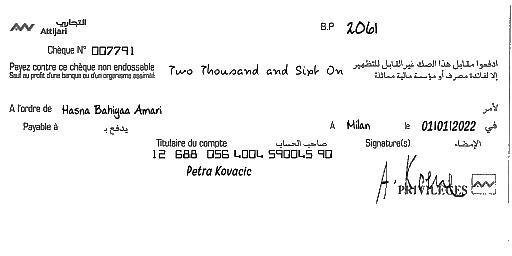 التجاري
Attijari
B.P 2061
Chèque N° 007791
Payez contre ce chèque non endossable
Sauf au profit d'une banque ou d'un organisme assimilé
Two Thousand and Sixt On
ادفعوا مقابل هذا الصك غير القابل للتظهير
إلا لفائدة مصرف أو مؤسسة مالية مماثلة
A l'ordre de Hasna Bahiyaa Amari لأمر
Payable à يدفع بـ A Milan le 01/01/2022 في
Titulaire du compte صاحب الحساب Signature(s) الإمضاء
12 688 056 4004 590045 90
Petra Kovacic
PRIVILEGES